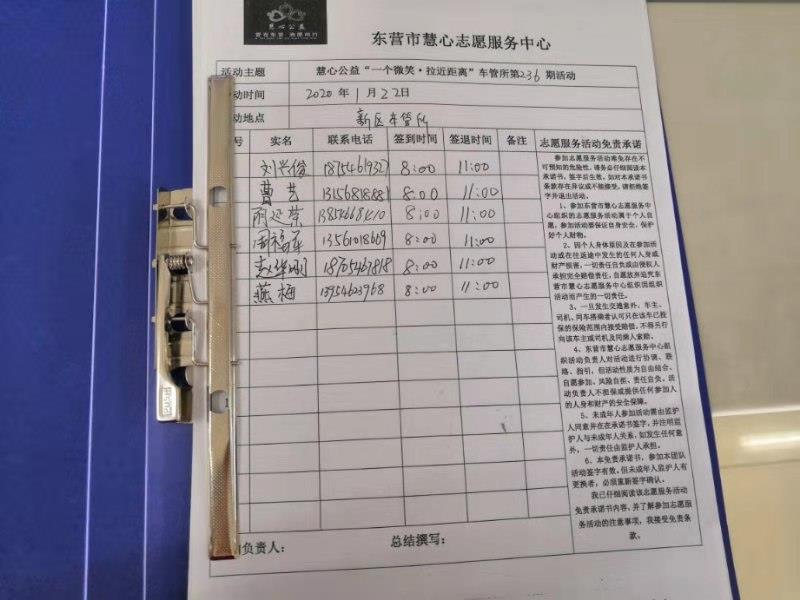 慧心公益
爱在东营 志愿同行
东营市慧心志愿服务中心
活动主题 慧心公益“一个微笑·拉近距离”车管所第236期活动
动时间 2020年1月22日
动地点 新区车管所
号 实名 联系电话 签到时间 签退时间 备注 志愿服务活动免责承诺
刘兴俊 18754619327 8:00 11:00
曹艺 8:00 11:00
8:00 11:00
周福军 13561018609 8:00 11:00
8:00 11:00
燕梅 13954623968 8:00 11:00
参加志愿服务活动难免存在不
可预知的危险性，请务必仔细阅读本
承诺书，签字后生效。如对本承诺书
条款存在异议或不能接受，请拒绝签
字并退出活动。
1、参加东营市慧心志愿服务中心
组织的志愿服务活动属于个人自
愿，参加活动要保证自身安全，保护
好个人财物。
2、因个人身体原因及在参加活动
或在往返途中发生的任何人身或
财产损害，一切责任自负或由侵权人
承担完全赔偿责任，自愿放弃追究东
营市慧心志愿服务中心组织因组织
活动而产生的一切责任。
3、一旦发生交通意外，车主、
司机、同车搭乘者认可只在该车已投
保的保险范围内接受赔偿，不得另行
向该车主或司机及同乘人索赔。
4、东营市慧心志愿服务中心组
织活动负责人对活动进行协调、联
络、指引，但活动性质为自由结合、
自愿参加、风险自担、责任自负。活
动负责人不担保或提供任何参加人
的人身和财产的安全保障。
5、未成年人参加活动需由监护
人同意并在在承诺书签字，并注明监
护人与未成年人关系，如发生任何意
外，一切责任由监护人承担。
6、本免责承诺书，参加本团队
活动签字有效。但未成年人监护人有
更换者，必须重新签字确认。
我已仔细阅读该志愿服务活动
免责承诺书内容，并了解参加志愿服
务活动的注意事项，我接受免责条
款。
负责人： 总结撰写：